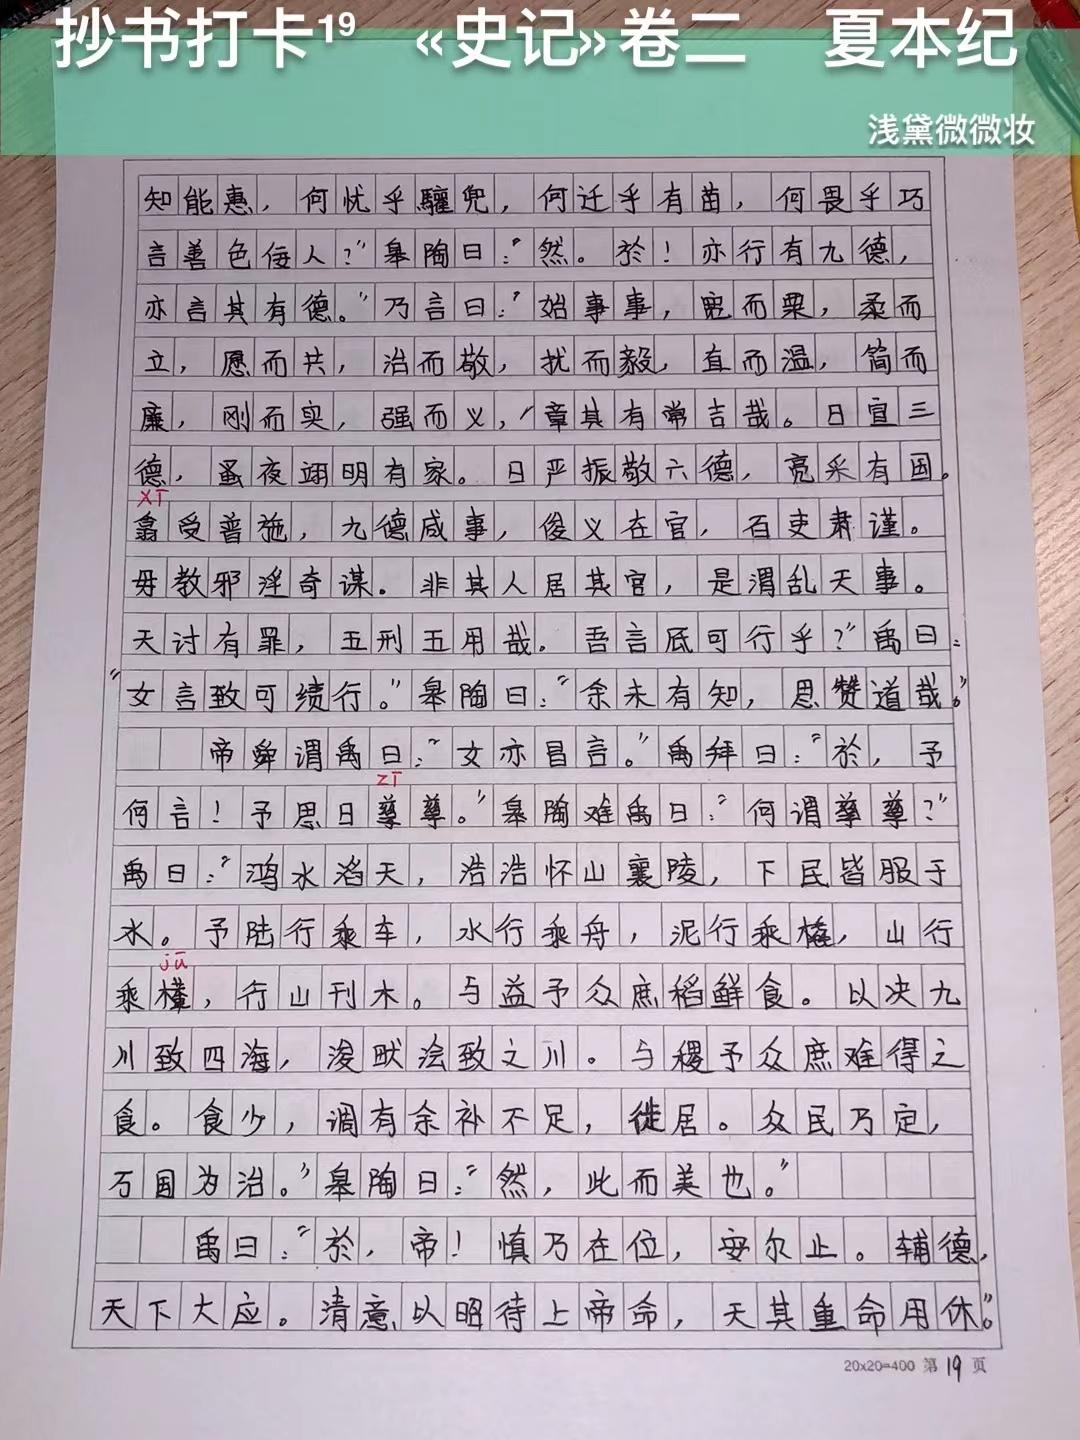 抄书打卡19 《史记》卷二 夏本纪
浅黛微微妆
知能惠，何忧乎驩兜，何迁乎有苗，何畏乎巧
言善色佞人？”皋陶曰：“然。於！亦行有九德，
亦言其有德。”乃言曰：“始事事，宽而栗，柔而
立，愿而共，治而敬，扰而毅，直而温，简而
廉，刚而实，强而义，章其有常吉哉。日宣三
德，蚤夜翊明有家。日严振敬六德，亮采有国。
xī
翕受普施，九德咸事，俊乂在官，百吏肃谨。
毋教邪淫奇谋。非其人居其官，是谓乱天事。
天讨有罪，五刑五用哉。吾言厎可行乎？”禹曰：
“女言致可绩行。”皋陶曰：“余未有知，思赞道哉。”
帝舜谓禹曰：“女亦昌言。”禹拜曰：“於，予
zī
何言！予思日孳孳。”皋陶难禹曰：“何谓孳孳？”
禹曰：“鸿水滔天，浩浩怀山襄陵，下民皆服于
水。予陆行乘车，水行乘舟，泥行乘橇，山行
jū
乘檋，行山刊木。与益予众庶稻鲜食。以决九
川致四海，浚畎浍致之川。与稷予众庶难得之
食。食少，调有余补不足，徙居。众民乃定，
万国为治。”皋陶曰：“然，此而美也。”
禹曰：“於，帝！慎乃在位，安尔止。辅德，
天下大应。清意以昭待上帝命，天其重命用休。”
20x20=400 第19页